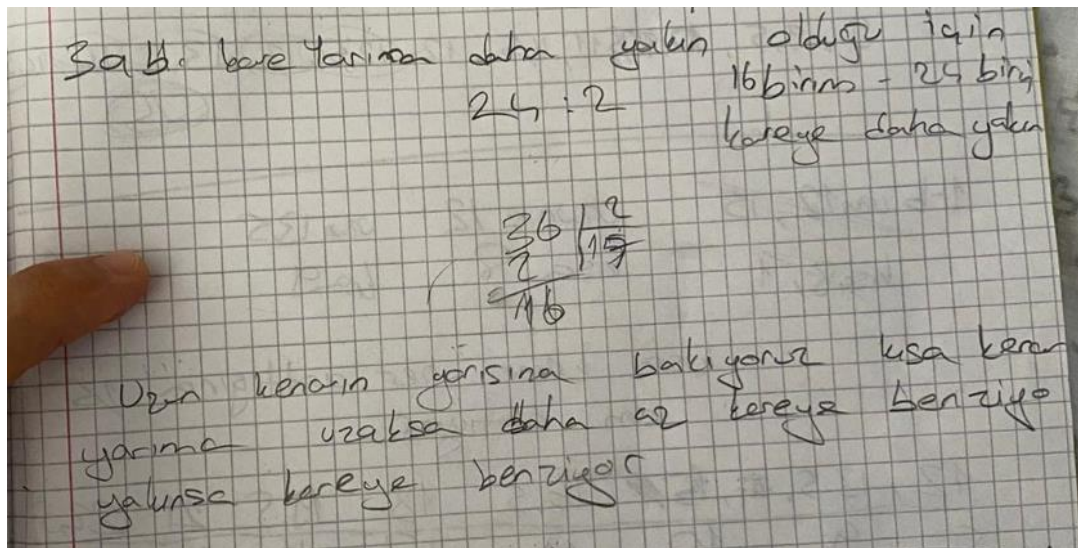 3ab. kare Yarıma daha yakın olduğu için
24 : 2 16 birim - 24 biri
kareye daha yakın
36 2
2
16
Uzun kenarın yarısına bakıyoruz kısa kenar
yarıma uzaksa daha az kareye benziyo
yakınsa kareye benziyor